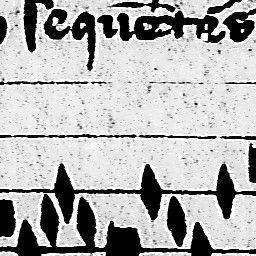 sequētes